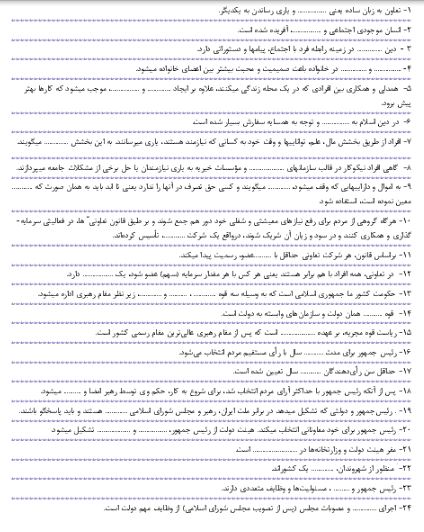 ۱- تعاون به زبان ساده یعنی .............. و یاری رساندن به یکدیگر.
۲- انسان موجودی اجتماعی و .............. آفریده شده است.
۳ - دین ............ در زمینه رابطه فرد با اجتماع، پیامها و دستوراتی دارد.
۴- ............. و ............ در خانواده باعث صمیمیت و محبت بیشتر بین اعضای خانواده میشود.
۵- همدلی و همکاری بین افرادی که در یک محله زندگی میکنند، علاوه بر ایجاد ............ و ............ موجب میشود که کارها بهتر
پیش برود.
۶- در دین اسلام به ............ و توجه به همسایه سفارش بسیار شده است.
۷- افراد از طریق بخشش مال، علم، تواناییها و وقت خود به کسانی که نیازمند هستند، یاری میرسانند. به این بخشش ............ میگویند.
۸- گاهی افراد نیکوکار در قالب سازمانهای ............ و مؤسسات خیریه به یاری نیازمندان یا حل برخی از مشکلات جامعه میپردازند.
۹- به اموال و داراییهایی که وقف میشود، ............ میگویند و کسی حق تصرف در آنها را ندارد یعنی تا ابد باید به همان صورت که ............
معین نموده است، استفاده شود.
۱۰- هرگاه گروهی از مردم برای رفع نیازهای معیشتی و شغلی خود دور هم جمع شوند و بر طبق قانون تعاونی ها، در فعالیتی سرمایه-
گذاری و همکاری کنند و در سود و زیان آن شریک شوند، درواقع یک شرکت ............ تأسیس کرده‌اند.
۱۱- براساس قانون، هر شرکت تعاونی حداقل با ........عضو رسمیت پیدا میکند.
۱۲- در تعاونی، همه افراد با هم برابر هستند، یعنی هر کس با هر مقدار سرمایه (سهم) عضو شود، یک ............ دارد.
۱۳- حکومت کشور ما جمهوری اسلامی است که به وسیله سه قوه ............ ، ............ و ............ زیر نظر مقام رهبری اداره میشود.
۱۴- قوه ......... همان دولت و سازمان های وابسته به دولت است.
۱۵- ریاست قوه مجریه، بر عهده ................ است که پس از مقام رهبری عالی‌ترین مقام رسمی کشور است.
۱۶- رئیس جمهور برای مدت ......... سال با رأی مستقیم مردم انتخاب می‌شود.
۱۷- حداقل سن رأی‌دهندگان ......... سال تعیین شده است.
۱۸- پس از آنکه رئیس جمهور با حداکثر آرای مردم انتخاب شد، برای شروع به کار، حکم وی توسط رهبر امضا و ......... میشود.
۱۹- رئیس‌جمهور و دولتی که تشکیل میدهد در برابر ملت ایران، رهبر و مجلس شورای اسلامی ............ هستند و باید پاسخگو باشند.
۲۰- رئیس جمهور برای خود معاونانی انتخاب میکند. هیئت دولت از رئیس جمهور، ............ و ............ تشکیل میشود.
۲۱- مقر هیئت دولت و وزارتخانه‌ها در .................. است.
۲۲- منظور از شهروندان، ............ یک کشوراند.
۲۳- رئیس جمهور و ......... ، مسئولیت‌ها و وظایف متعددی دارند.
۲۴- اجرای ............ و مصوبات مجلس (پس از تصویب مجلس شورای اسلامی) از وظایف مهم دولت است.